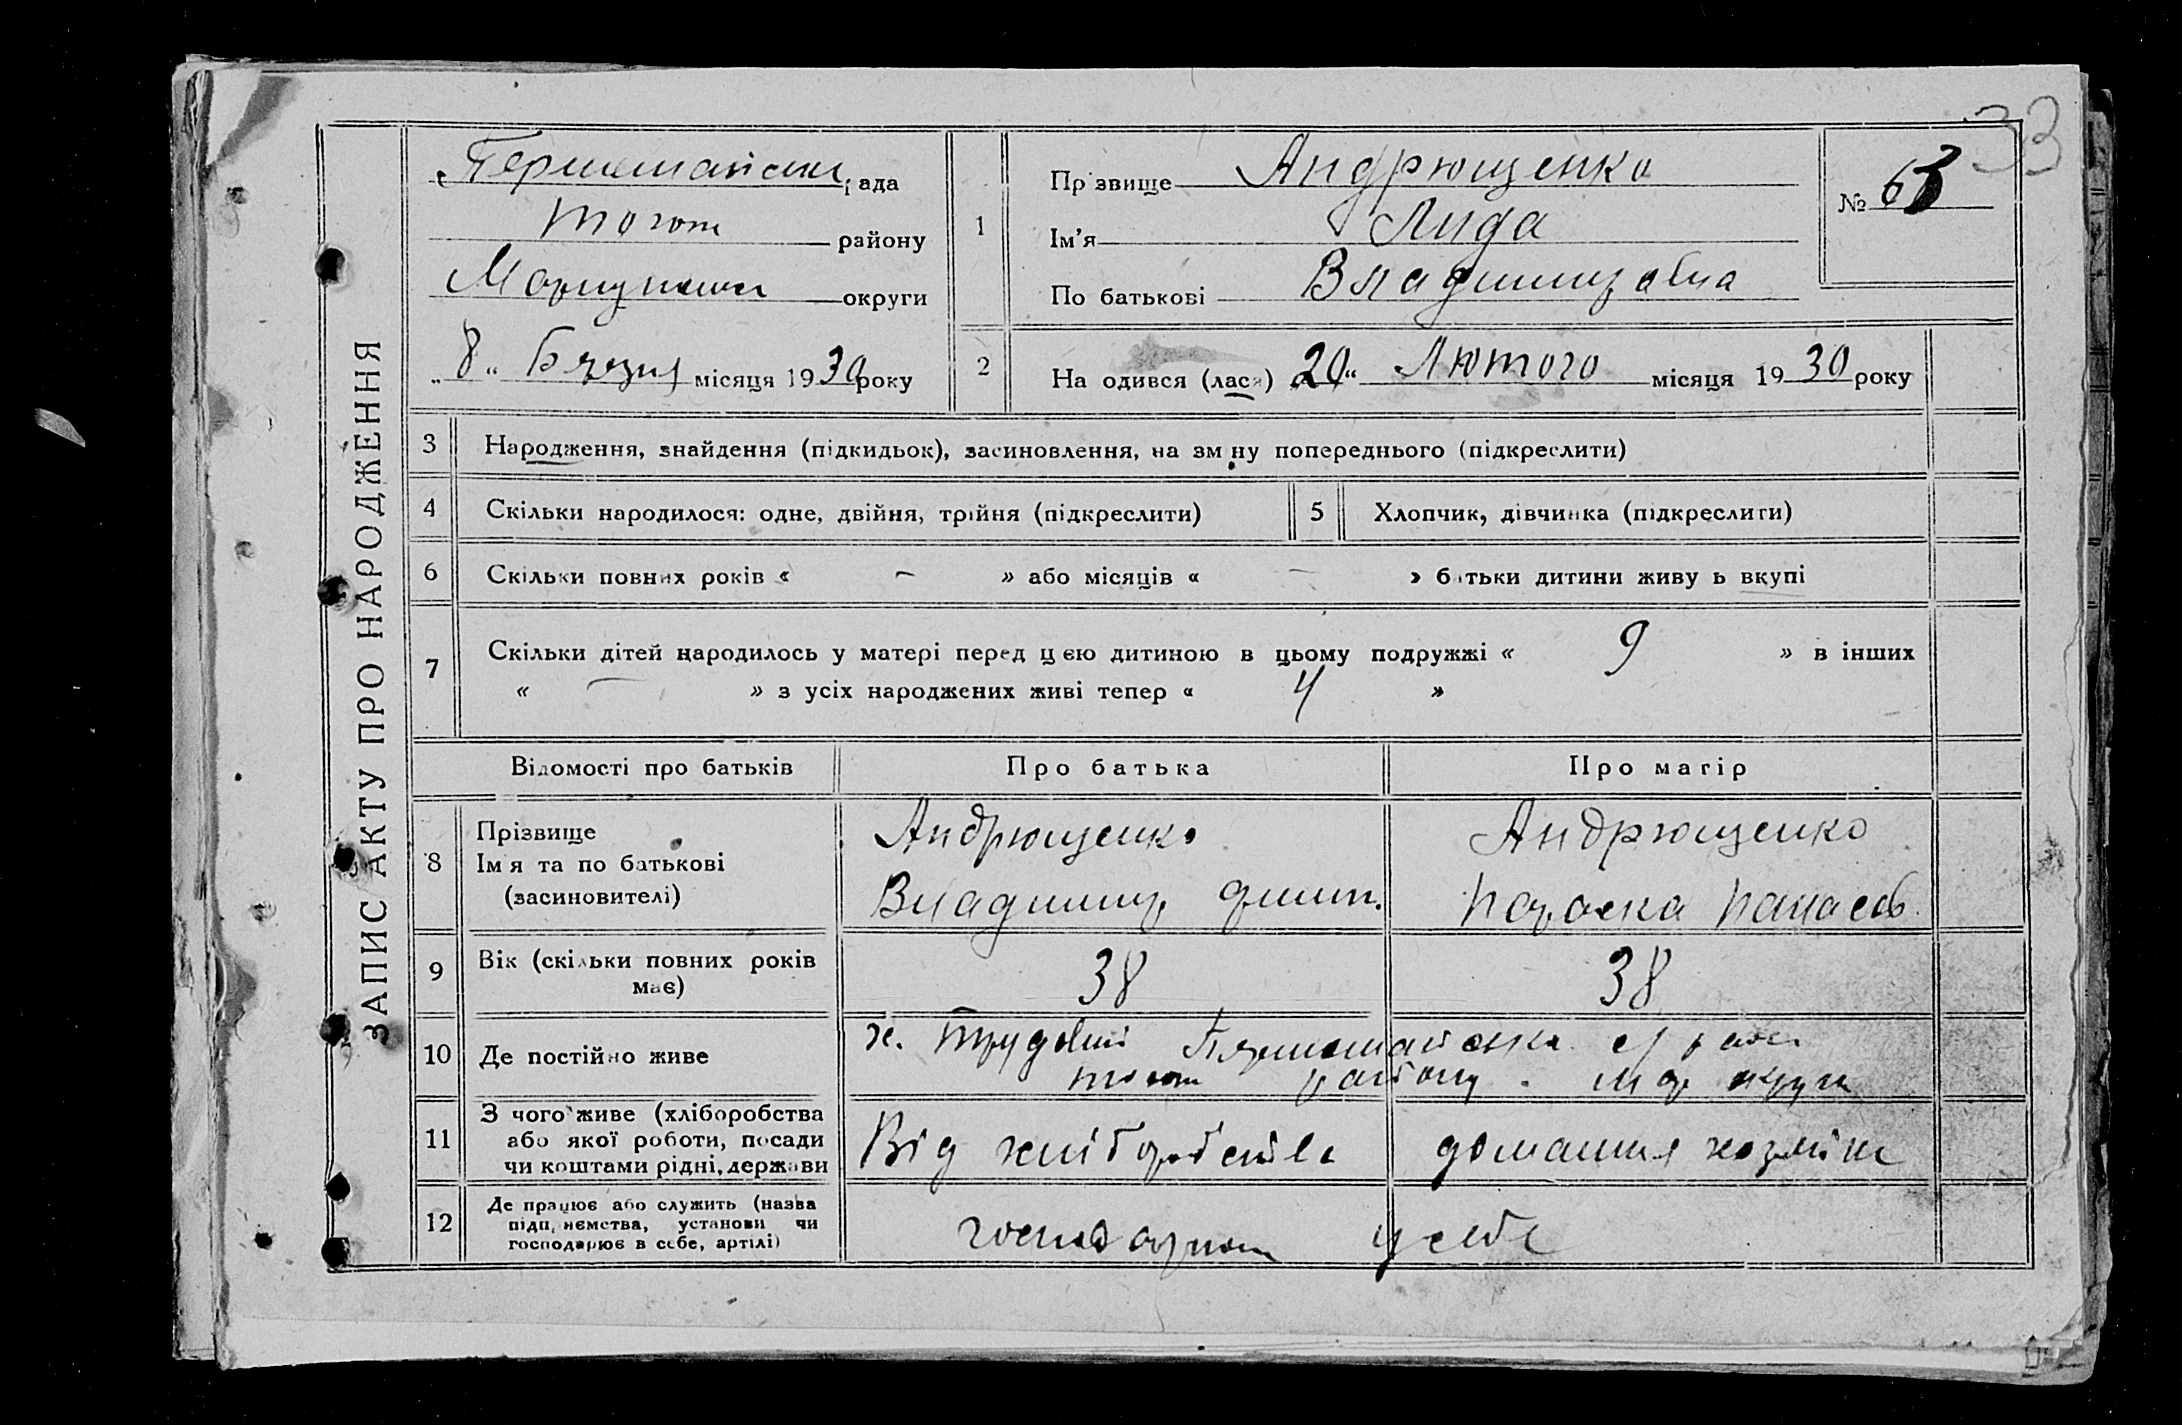 33
ЗАПИС АКТУ ПРО НАРОДЖЕННЯ
Першемайськ рада
Тогот району
Маріупольськ округи
„8“ Березня місяця 1930 року
1
Прізвище Андрющенко
Ім'я Лида
По батькові Владимировна
№ 63
2
На одився (лася) 20“ Лютого місяця 1930 року
3 Народження, знайдення (підкидьок), засиновлення, на зміну попереднього (підкреслити)
4 Скільки народилося: одне, двійня, трійня (підкреслити) 5 Хлопчик, дівчинка (підкреслити)
6 Скільки повних років « — » або місяців « — » батьки дитини живуть вкупі
7 Скільки дітей народилось у матері перед цією дитиною в цьому подружжі « 9 » в інших
« — » з усіх народжених живі тепер « 4 »
Відомості про батьків Про батька Про матір
8 Прізвище
Ім'я та по батькові
(засиновителі)
Андрющенко
Владимир Дмит.
Андрющенко
Параска Панасов.
9 Вік (скільки повних років
має)
38 38
10 Де постійно живе
х. Трудовий Першемайська с/рада
району Мар округи
11 З чого живе (хліборобства
або якої роботи, посади
чи коштами рідні, держави
Від хліборобства домашня хазяйка
12 Де працює або служить (назва
підприємства, установи чи
господарює в себе, артілі)
господарюють у себе